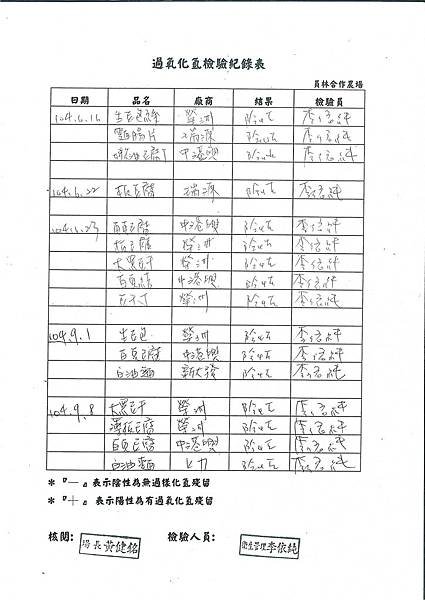 過氧化氫檢驗紀錄表
員林合作農場
日期 品名 廠商 結果 檢驗員
104.6.16 生豆包絲 榮洲 陰性 李依純
瑞源 陰性 李依純
中港興 陰性 李依純
104.6.22 板豆腐 瑞源 陰性 李依純
104.6.23 百頁豆腐 中港興 陰性 李依純
板豆腐 榮洲 陰性 李依純
大黑豆干 榮洲 陰性 李依純
百頁結 中港興 陰性 李依純
榮洲 陰性 李依純
104.9.1 生豆包 榮洲 陰性 李依純
百頁豆腐 中港興 陰性 李依純
白油麵 新大發 陰性 李依純
104.9.8 大黑豆干 榮洲 陰性 李依純
薄板豆腐 榮洲 陰性 李依純
百頁豆腐 中港興 陰性 李依純
白油麵 陰性 李依純
*『—』表示陰性為無過樣化氫殘留
*『十』表示陽性為有過氧化氫殘留
核閱: 場長黃健銘 檢驗人員: 衛生管理李依純